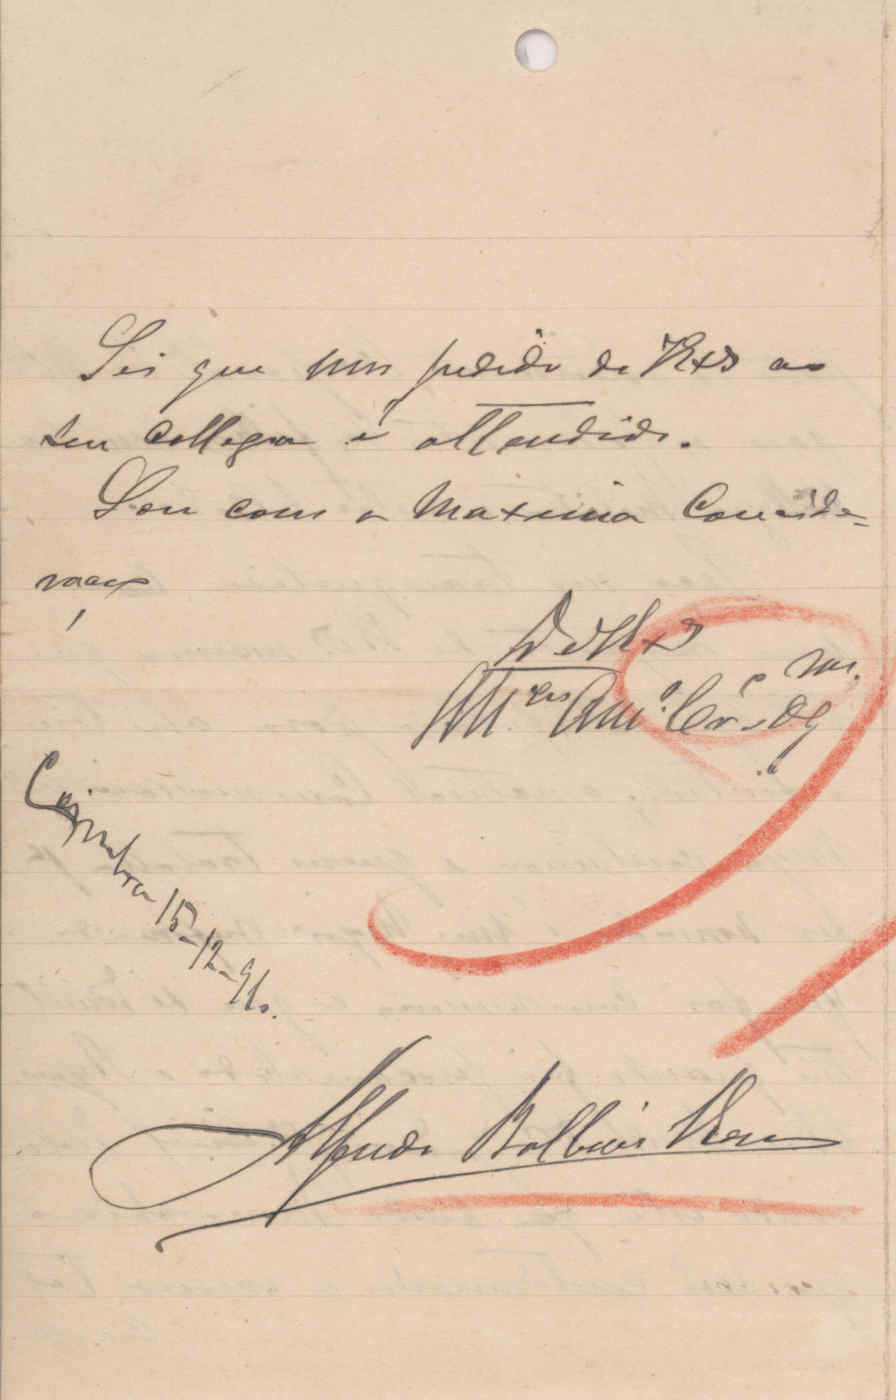 Sei que um pedido de VExª ao
seu collega é attendido.
Sou com a Maxima Conside=
ração
De VExª
Mto Amo Cro e Obg
Coimbra 15-12-96.
Alfredo